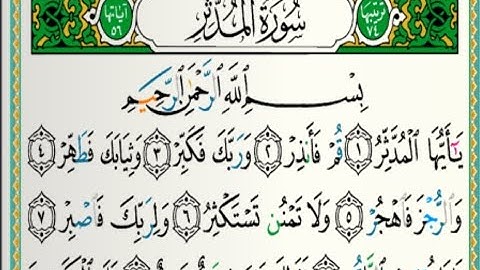 ترتيبها ٧٤ سُورَةُ الْمُدَّثِّرِ آياتها ٥٦
بِسْمِ اللَّهِ الرَّحْمَٰنِ الرَّحِيمِ
يَٰٓأَيُّهَا ٱلْمُدَّثِّرُ ١ قُمْ فَأَنذِرْ ٢ وَرَبَّكَ فَكَبِّرْ ٣ وَثِيَابَكَ فَطَهِّرْ ٤
وَٱلرُّجْزَ فَٱهْجُرْ ٥ وَلَا تَمْنُن تَسْتَكْثِرُ ٦ وَلِرَبِّكَ فَٱصْبِرْ ٧